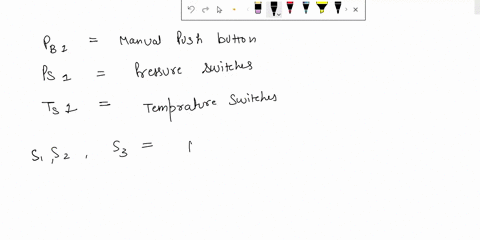 PB1 = Manual Push button
PS1 = Pressure Switches
TS1 = Temprature Switches
S1, S2, S3 =